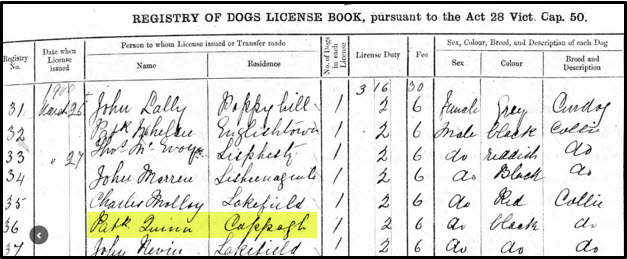 REGISTRY OF DOGS LICENSE BOOK, pursuant to the Act 28 Vict. Cap. 50.
Registry No. Date when License issued Person to whom License issued or Transfer made Name Residence No. of Dogs in each License License Duty Fee Sex, Colour, Breed, and Description of each Dog Sex Colour Breed and Description
1900 3 16 30
31 March 26 John Lally Poppyhill 1 2 6 Female Grey Curdog
32 Patk Whelan Englishtown 1 2 6 Male black Collie
33 " 27 Thos Mc Evoy 1 2 6 do reddish do
34 John Warren 1 2 6 do Black do
35 Charles Molloy Lakefield 1 2 6 do Red Collie
36 Patk Quinn Cappagh 1 2 6 do black do
37 John Nevin Lakefield 1 2 6 do do do